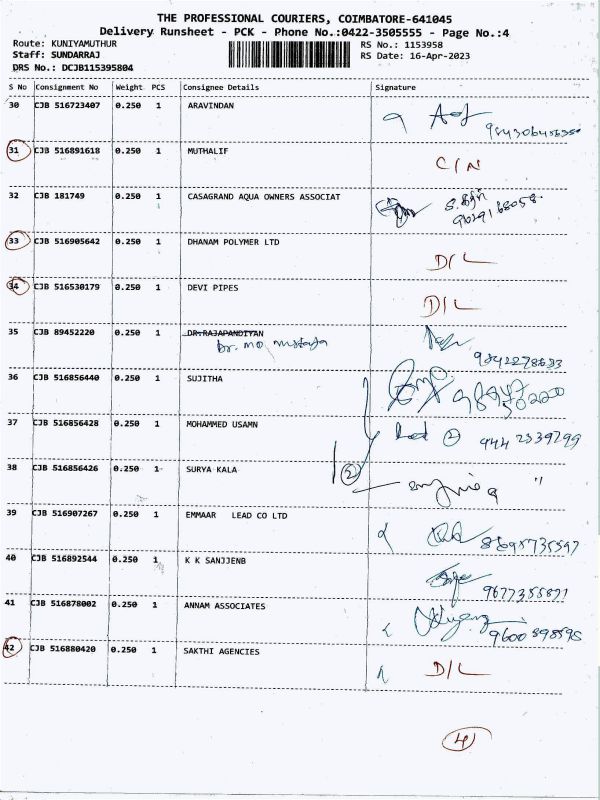 THE PROFESSIONAL COURIERS, COIMBATORE-641045
Delivery Runsheet - PCK - Phone No.:0422-3505555 - Page No.:4
Route: KUNIYAMUTHUR RS No.: 1153958
Staff: SUNDARRAJ RS Date: 16-Apr-2023
DRS No.: DCJB115395804
S No Consignment No Weight PCS Consignee Details Signature
30 CJB 516723407 0.250 1 ARAVINDAN
31 CJB 516891618 0.250 1 MUTHALIF C/N
32 CJB 181749 0.250 1 CASAGRAND AQUA OWNERS ASSOCIAT
33 CJB 516905642 0.250 1 DHANAM POLYMER LTD D/L
34 CJB 516530179 0.250 1 DEVI PIPES D/L
35 CJB 89452220 0.250 1 DR.RAJAPANDIYAN
Dr. MO. Mustafa
36 CJB 516856440 0.250 1 SUJITHA
37 CJB 516856428 0.250 1 MOHAMMED USAMN 2
38 CJB 516856426 0.250 1 SURYA KALA 2 "
39 CJB 516907267 0.250 1 EMMAAR LEAD CO LTD
40 CJB 516892544 0.250 1 K K SANJJENB
9677355871
41 CJB 516878002 0.250 1 ANNAM ASSOCIATES
9600898595
42 CJB 516880420 0.250 1 SAKTHI AGENCIES D/L
4